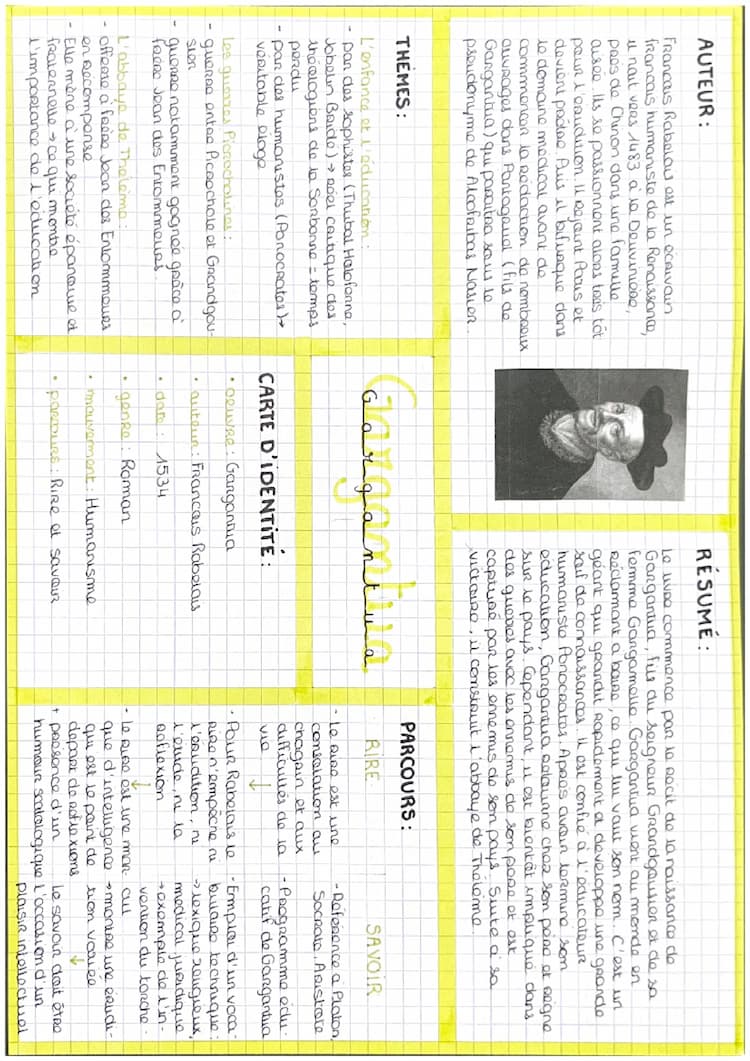 AUTEUR :
Francois Rabelais est un écrivain
francais humaniste de la Renaissance,
il nait vers 1483 à la Devinière,
près de Chinon dans une famille
aisée. Ils se passionnent alors très tôt
pour l'érudition. Il rejoint Paris et
devient prêtre. Puis il bifurque dans
le domaine médical avant de
commencer la redaction de nombreux
ouvrages dans Pantagruel (fils de
Gargantua) qui paraitra sous le
pseudonyme de Alcofribas Nasier.
RÉSUMÉ :
Le livre commence par le récit de la naissance de
Gargantua, fils du seigneur Grandgousier et de sa
femme Gargamelle. Gargantua vient au monde en
réclamant a boire, ce qui lui vaut son nom. C'est un
géant qui grandit rapidement et développe une grande
soif de connaissances. Il est confié à l'educateur
humaniste Ponocrates. Apres avoir terminé son
education, Gargantua retourne chez son père et règne
sur le pays. Cependant, il est bientôt impliqué dans
des guerres avec les ennemis de son père et est
capturé par les ennemis de son pays. Suite à sa
victoire, il construit l'abbaye de Thélème.
THÈMES :
L'enfance et l'éducation :
- par des sophistes (Thubal Holoferne,
Jobelin Bridé) → réel critique des
théologiens de la Sorbonne = temps
perdu
- par des humanistes (Ponocrates) →
veritable éloge
Les guerres Picrocholines :
- guerre entre Picrochole et Grandgou-
sier
- guerre notamment gagnée grâce à
frère Jean des Entommeures
L'abbaye de Thélème :
- offerte à frère Jean des Entommeures
en récompense
- Elle mène à une société épanouie et
fraternelle → ce qui montre
l'importance de l'éducation
Gargantua
Gargantua
CARTE D'IDENTITÉ :
• oeuvre : Gargantua
• auteur : Francois Rabelais
• date : 1534
• genre : Roman
• mouvement : Humanisme
• parcours : Rire et savoir
PARCOURS :
RIRE
- Le rire est une
consolation au
chagrin et aux
difficultés de la
vie
↓
- Pour Rabelais le
rire n'empêche ni
l'érudition, ni
l'étude, ni la
réflexion
↓
- Le rire est une mar-
que d'intelligence
qui est le point de
départ de réflexions
+ présence d'un
humour scatologique
SAVOIR
- Référence a Platon,
Socrate, Aristote
- Programme édu-
catif de Gargantua
- Emploi d'un voca-
bulaire technique :
→ lexique religieux,
médical, juridique
→ exemple de l'in-
vention du torche-
cul
→ montre une érudi-
tion variée
↓
Le savoir doit être
l'occasion d'un
plaisir intellectuel